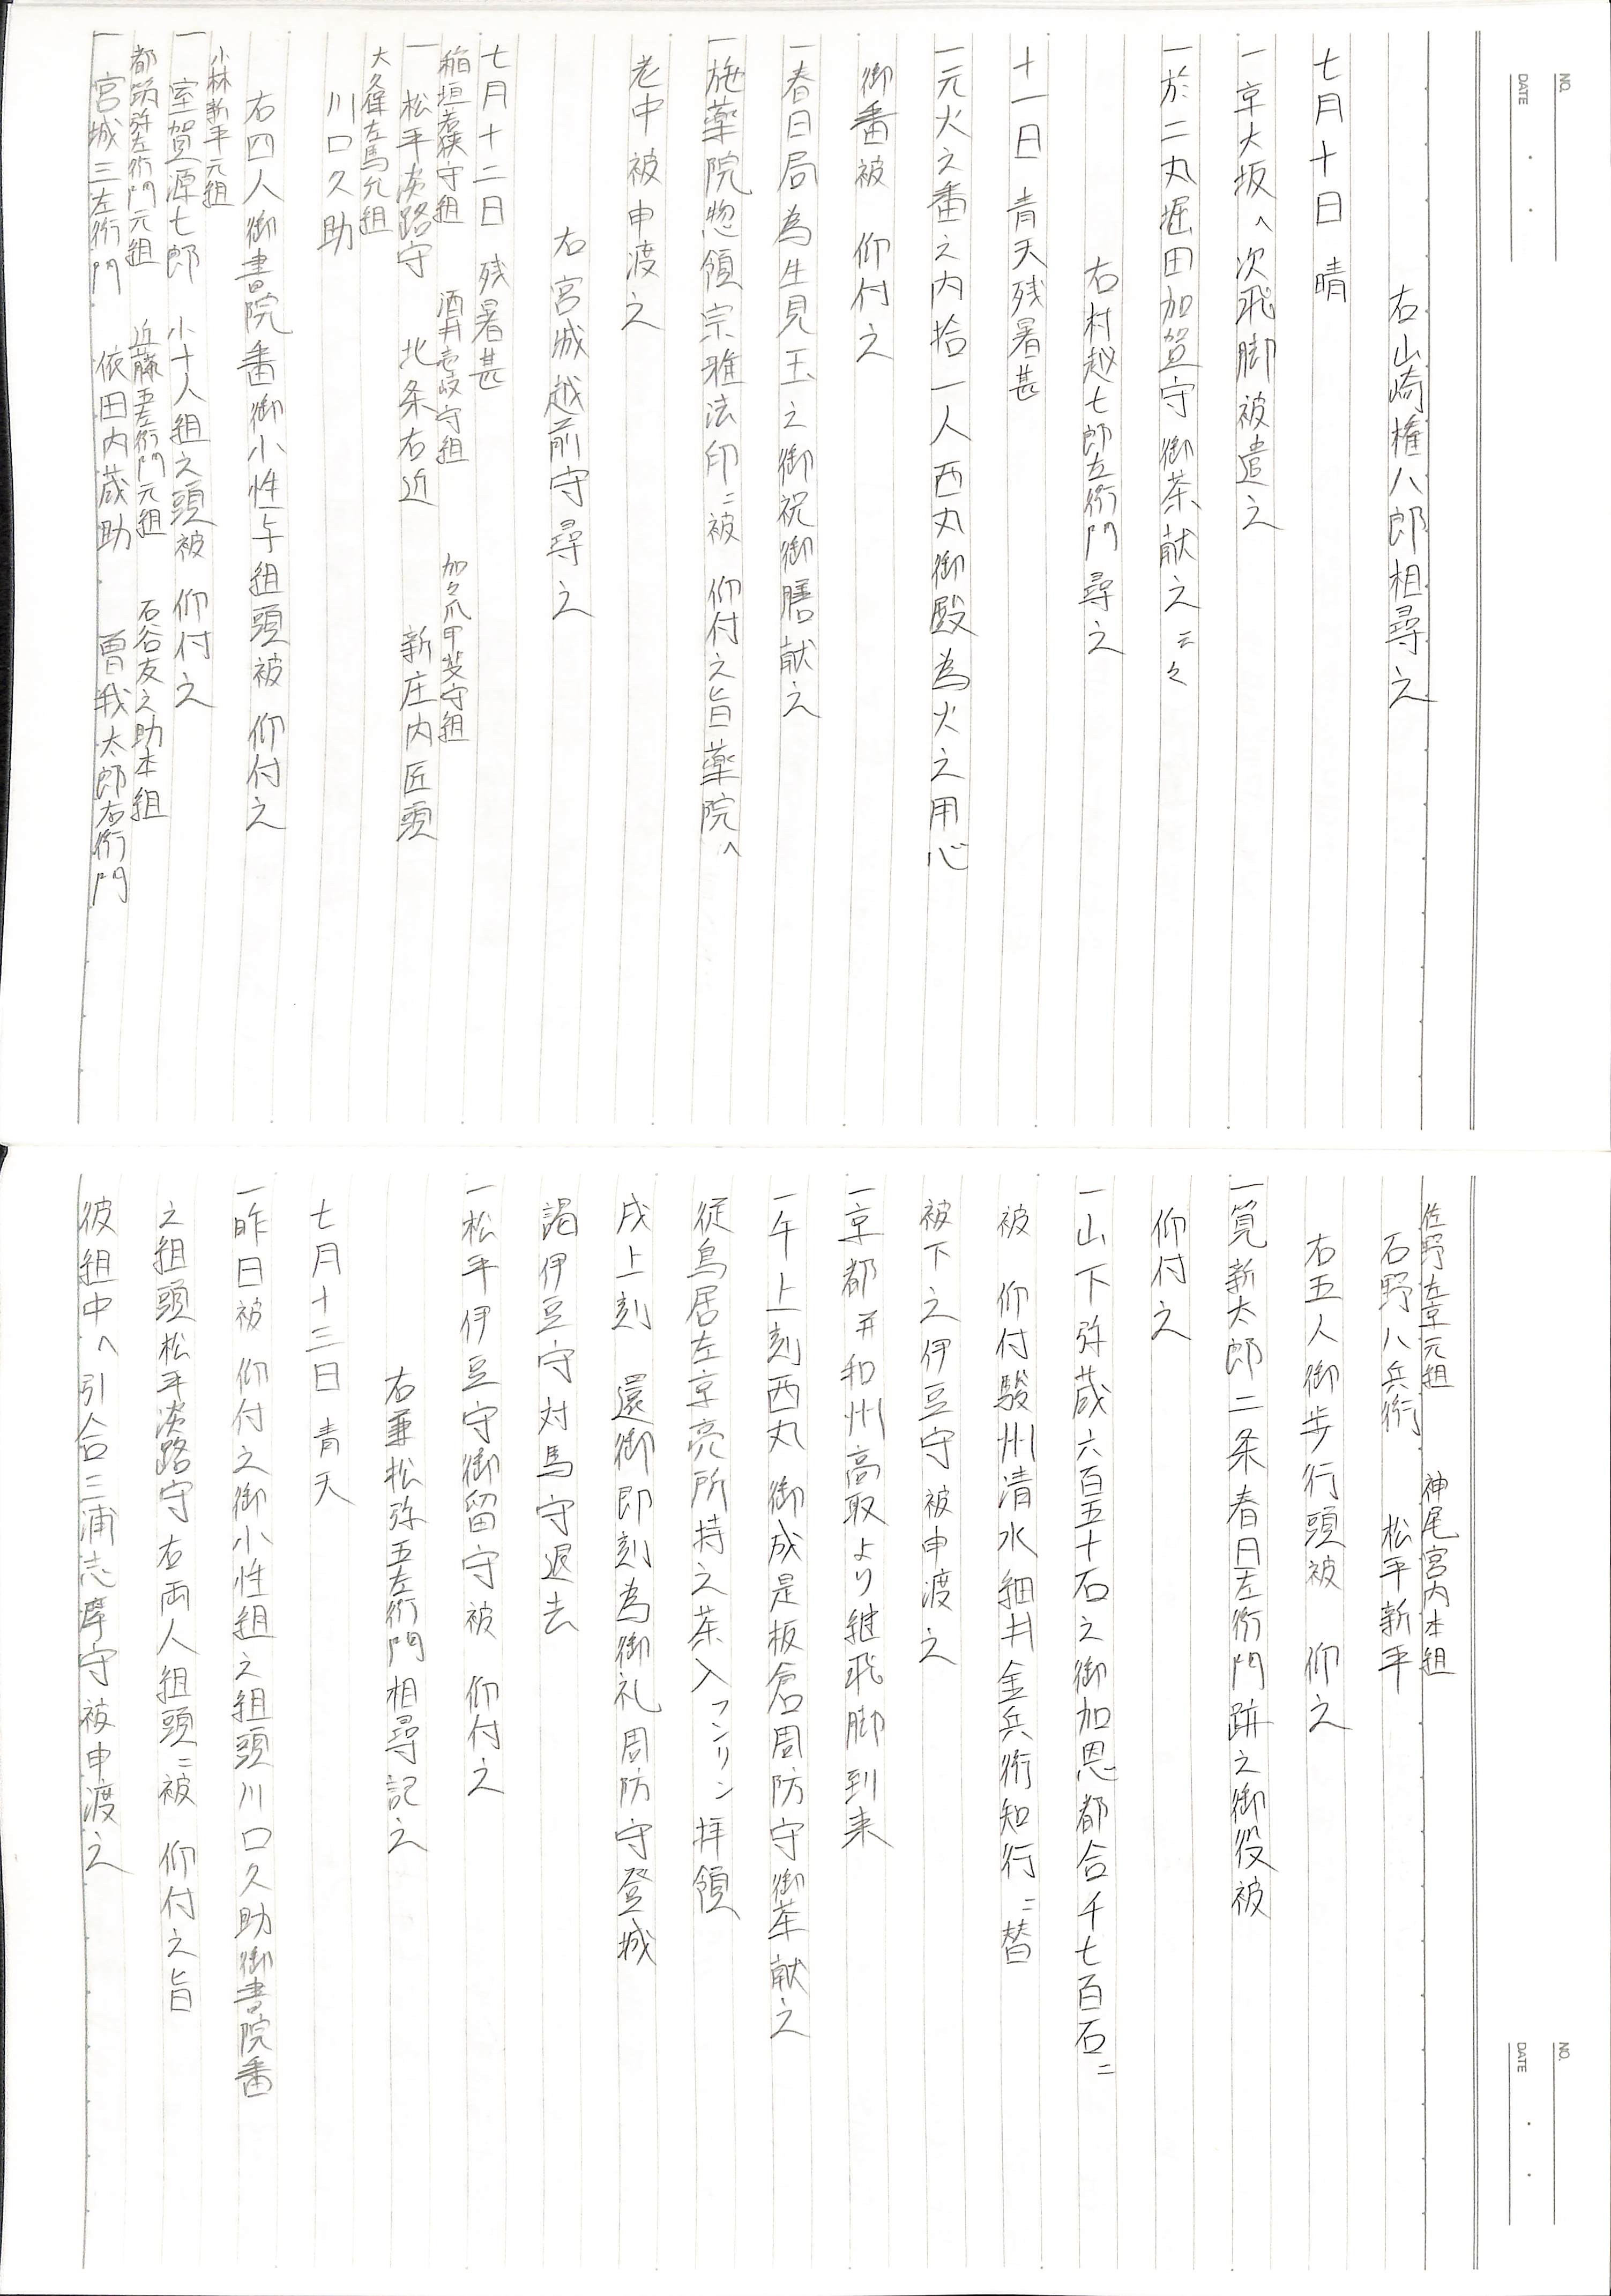 NO.
DATE
右山崎権八郎相尋之
七月十日 晴
一京大坂へ次飛脚被遣之
一於二丸堀田加賀守御茶献之云々
右村越七郎左衛門尋之
十一日 青天残暑甚
一元火之番之内拾一人西丸御殿為火之用心
御番被 仰付之
一春日局為生見玉之御祝御膳献之
一施薬院惣領宗雅法印ニ被 仰付之旨薬院へ
老中被申渡之
右宮城越前守尋之
七月十二日 残暑甚
稲垣若狭守組 酒井壱岐守組 加々爪甲斐守組
一松平淡路守 北条右近 新庄内匠頭
大久保左馬允組
川口久助
右四人御書院番御小性与組頭被 仰付之
小林新平元組
一室賀源七郎 小十人組之頭被 仰付之
都筑弥左衛門元組 近藤五左衛門元組 石谷友之助本組
一宮城三左衛門 依田内蔵助 曽我太郎右衛門
NO.
DATE
佐野左京元組 神尾宮内本組
石野八兵衛 松平新平
右五人御歩行頭被 仰之
一筧新太郎二条春日左衛門跡之御役被
仰付之
一山下弥蔵六百五十石之御加恩都合千七百石ニ
被 仰付駿州清水細井金兵衛知行ニ替
被下之伊豆守被申渡之
一京都并和州高取より継飛脚到来
一午上刻西丸 御成是板倉周防守御茶献之
従鳥居左京亮所持之茶入フンリン拝領
戌上刻 還御即刻為御礼周防守登城
謁伊豆守対馬守退去
一松平伊豆守御留守被 仰付之
右重松弥五左衛門相尋記之
七月十三日 青天
一昨日被 仰付之御小性組之組頭川口久助御書院番
之組頭松平淡路守右両人組頭ニ被 仰付之旨
彼組中へ引合三浦志摩守被申渡之